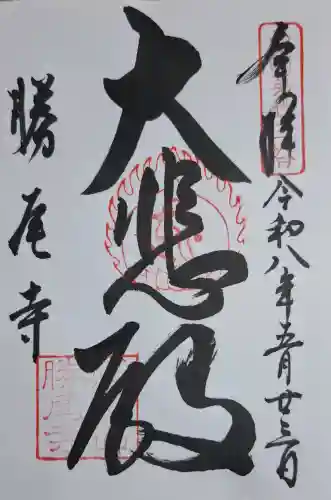 奉拝
令和八年五月廿三日
大悲殿
勝尾寺
勝尾寺